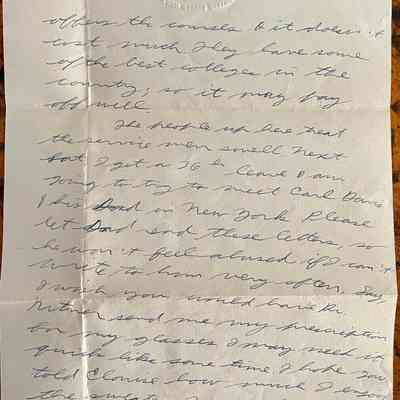 offers the courses & it doesn't
cost much. They have some
of the best colleges in the
country, so it may pay
off well.
The people up here treat
the service men swell. Next
I get a 76 hr leave I am
going to try to meet Carl
& his Dad in New York. Please
let Dad read these letters, so
he won't feel abused if I can't
write to him very often. Say,
I wish you would have Dr.
send me my prescription
for my glasses. I may need it
quick like some time. I hope you
told how much I enjoy
the